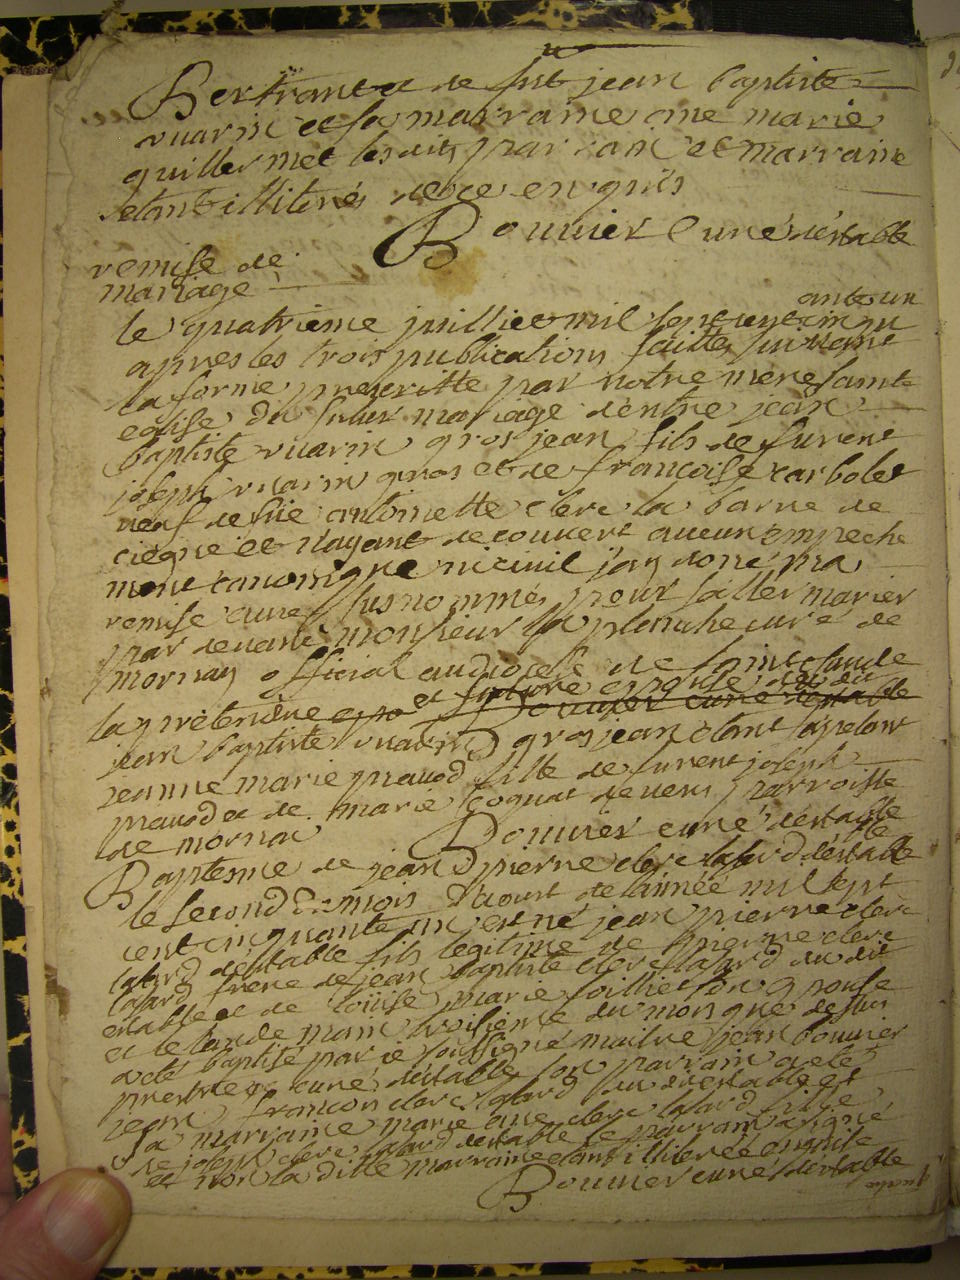 Bertrand de fut jean baptiste
vuarin et sa marraine ane marie
quillermet lesdits parrain et marraine
etant illiterés de ce enquis
Bouvier Curé destable
remise de
mariage
le quatrieme juillie mil sept cent cinquante un
apres les trois publications faittes suivant
la forme prescritte par notre mere sainte
eglise du futur mariage dentre jean
baptiste vuarin gros jean fils de furent
joseph vuarin gros et de francoise carbolet
veuf de fue antoinette clerc la barne de
et nayant decouvert aucun empeche
ment canonique ni civil jay doné ma
remise aux susnommés pour saller marier
par devant monsieur la planche curé de
mornay official au diocese de saint claude
la pretendue et future epouse du dit
Bouvier curé destable
jean baptiste vuarin gros jean etant sapelant
jeanne marie pravod fille de furent joseph
pravod et de marie cognat de parroisse
de mornai Bouvier curé destable
Baptesme de jean pierre clerc lafard destable
le second du mois daoust de lannée mil sept
cent cinquante un est né jean pierre clerc
lafard destable fils legitime de pierre clerc
lafard frere de jean baptiste clerc lafard du dit
estable et de louise marie son epouse
et le lande main troisieme du mois que dessus
a eté baptisé par je soussigné maitre jean bouvier
prestre et curé destable son parrain a eté
jean francon clerc lafard du dit estable et
sa marraine marie ane clerc lafard fille
de joseph clerc lafard destable le parrain a signé
et non la ditte marraine etant illiterée enquise
Bouvier curé destable